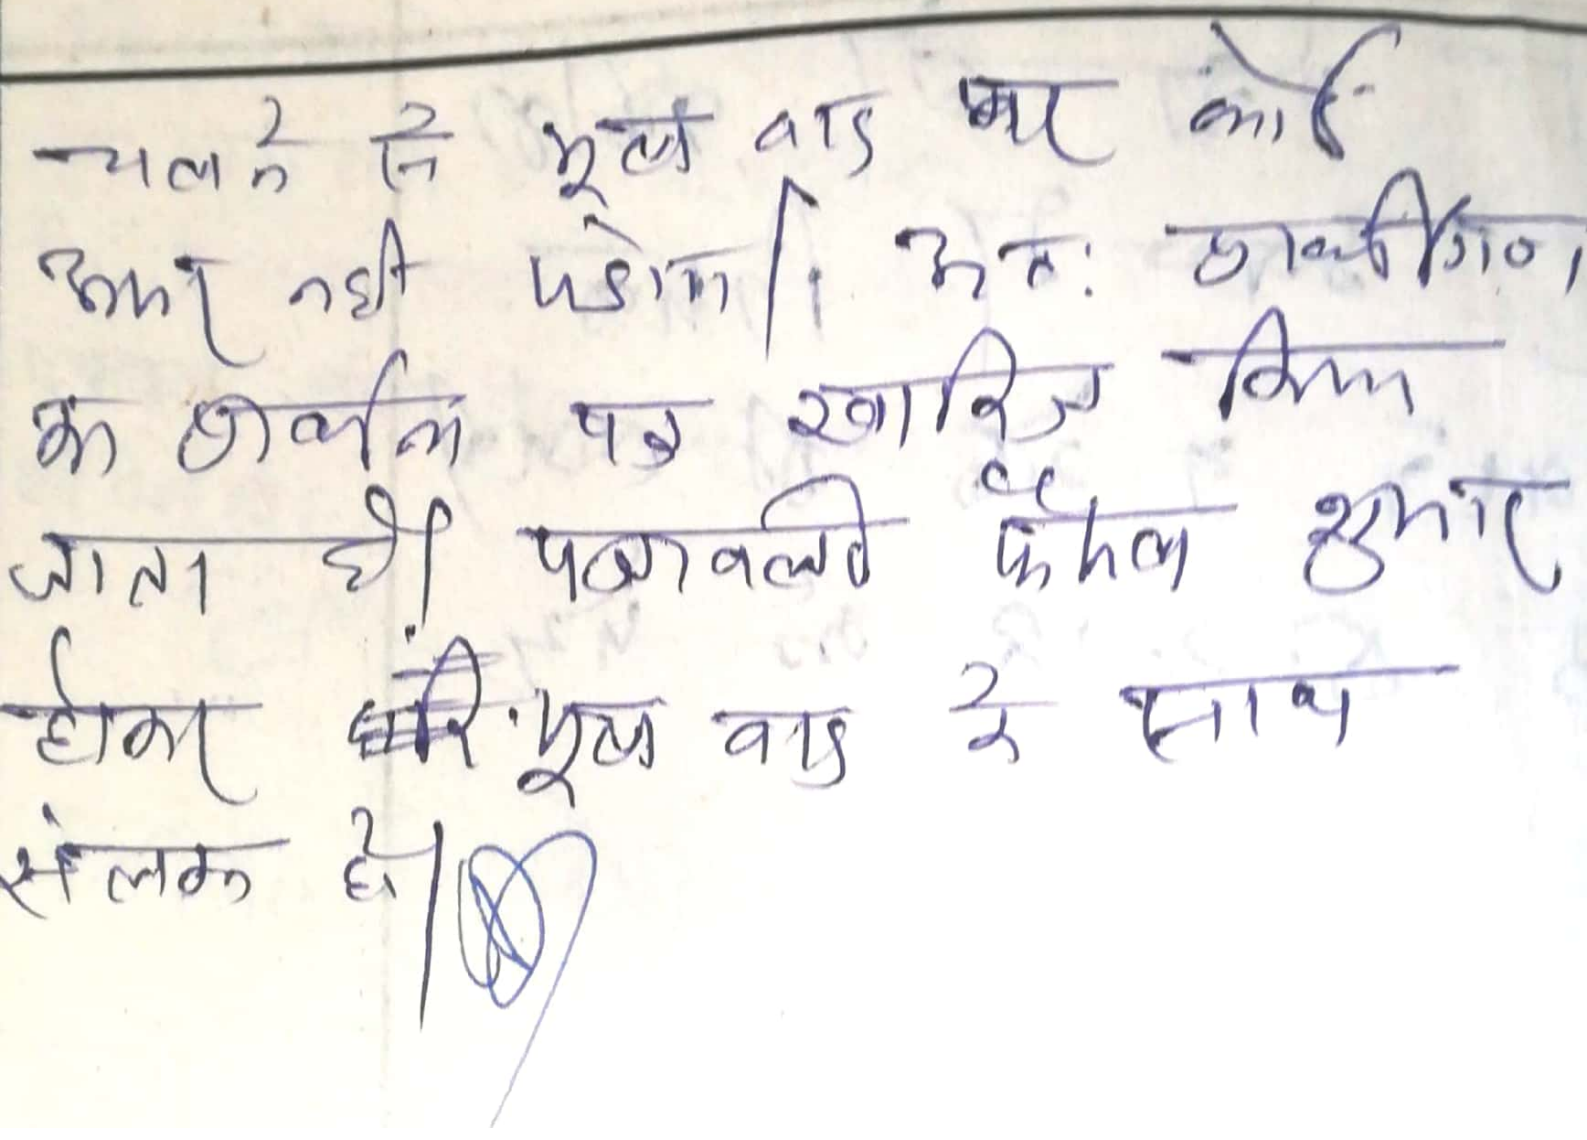 चलने से मूल वाद पर कोई
असर नहीं पडेगा। अतः प्रार्थीगण
का प्रार्थना पत्र खारिज किया
जाता है। पत्रावली फैसल शुमार
होकर मूल वाद के साथ
संलग्न है।